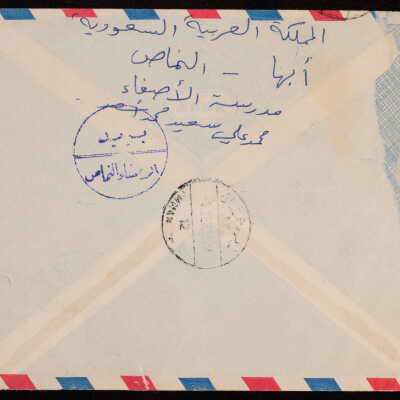 المملكة العربية السعودية
أبها - النماص
مدرسة الأصفاء
محمد علي سعيد محمد
بريد
النماص
AMMAN